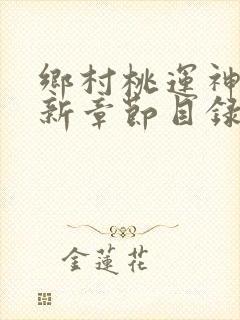 鄉村桃運神
新章節目錄
金蓮花